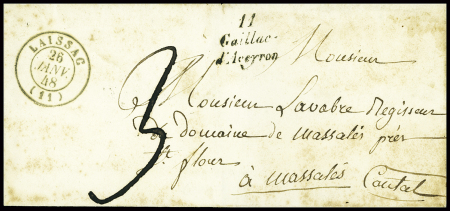 LAISSAC
26
JANV.
48
(11)
11
Gaillac-
d'Aveyron
3
Monsieur
Monsieur Lavabre Regisseur
Domaine de massalés près
St. flour
à massalés Cantal